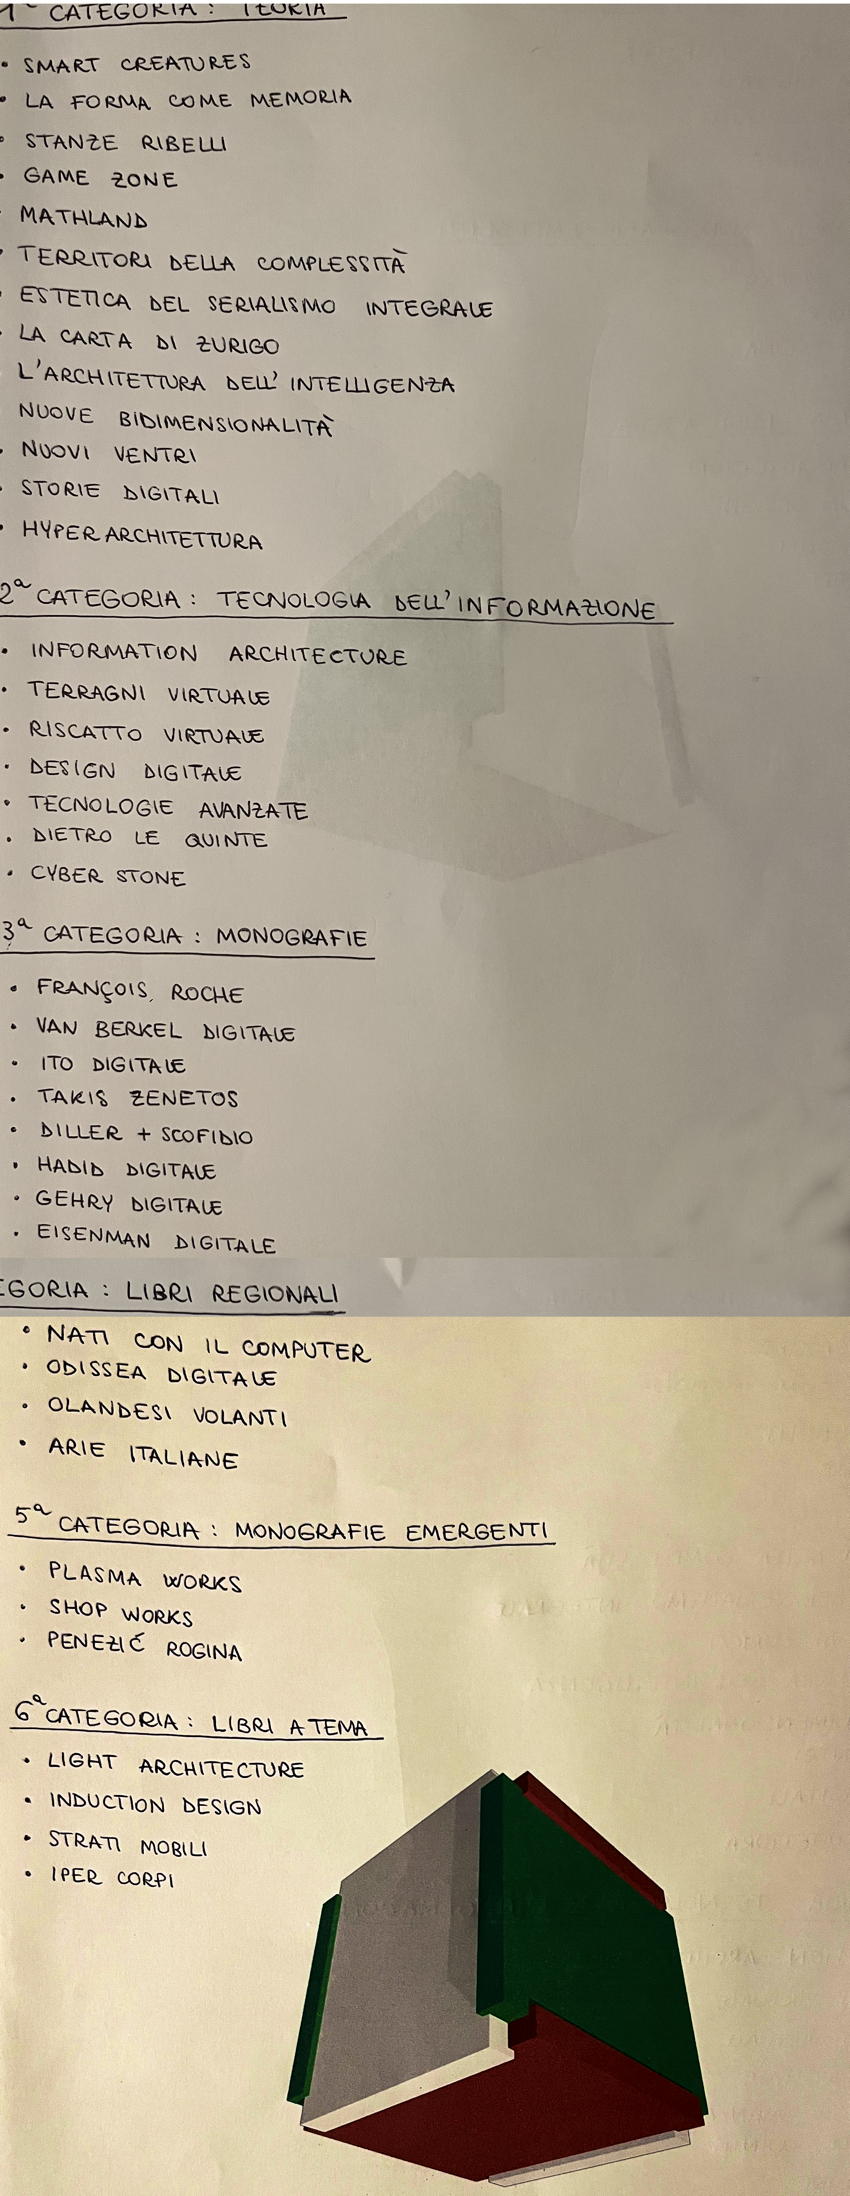 1ª CATEGORIA : TEORIA
• SMART CREATURES
• LA FORMA COME MEMORIA
• STANZE RIBELLI
• GAME ZONE
• MATHLAND
• TERRITORI DELLA COMPLESSITÀ
• ESTETICA DEL SERIALISMO INTEGRALE
• LA CARTA DI ZURIGO
L'ARCHITETTURA DELL'INTELLIGENZA
NUOVE BIDIMENSIONALITÀ
• NUOVI VENTRI
• STORIE DIGITALI
• HYPERARCHITETTURA
2ª CATEGORIA : TECNOLOGIA DELL'INFORMAZIONE
• INFORMATION ARCHITECTURE
• TERRAGNI VIRTUALE
• RISCATTO VIRTUALE
• DESIGN DIGITALE
• TECNOLOGIE AVANZATE
• DIETRO LE QUINTE
• CYBER STONE
3ª CATEGORIA : MONOGRAFIE
• FRANÇOIS ROCHE
• VAN BERKEL DIGITALE
• ITO DIGITALE
• TAKIS ZENETOS
• DILLER + SCOFIDIO
• HADID DIGITALE
• GEHRY DIGITALE
• EISENMAN DIGITALE
EGORIA : LIBRI REGIONALI
• NATI CON IL COMPUTER
• ODISSEA DIGITALE
• OLANDESI VOLANTI
• ARIE ITALIANE
5ª CATEGORIA : MONOGRAFIE EMERGENTI
• PLASMA WORKS
• SHOP WORKS
• PENEZIĆ ROGINA
6ª CATEGORIA : LIBRI A TEMA
• LIGHT ARCHITECTURE
• INDUCTION DESIGN
• STRATI MOBILI
• IPER CORPI